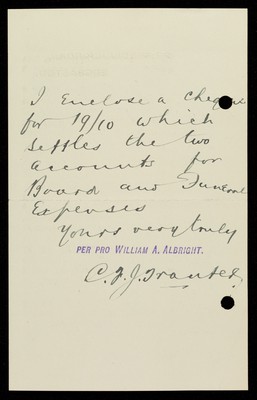 I Enclose a cheque
for 19/10 which
settles the two
accounts for
Board and Funeral
Expenses
Yours very truly
PER PRO WILLIAM A. ALBRIGHT.
C. J. J.